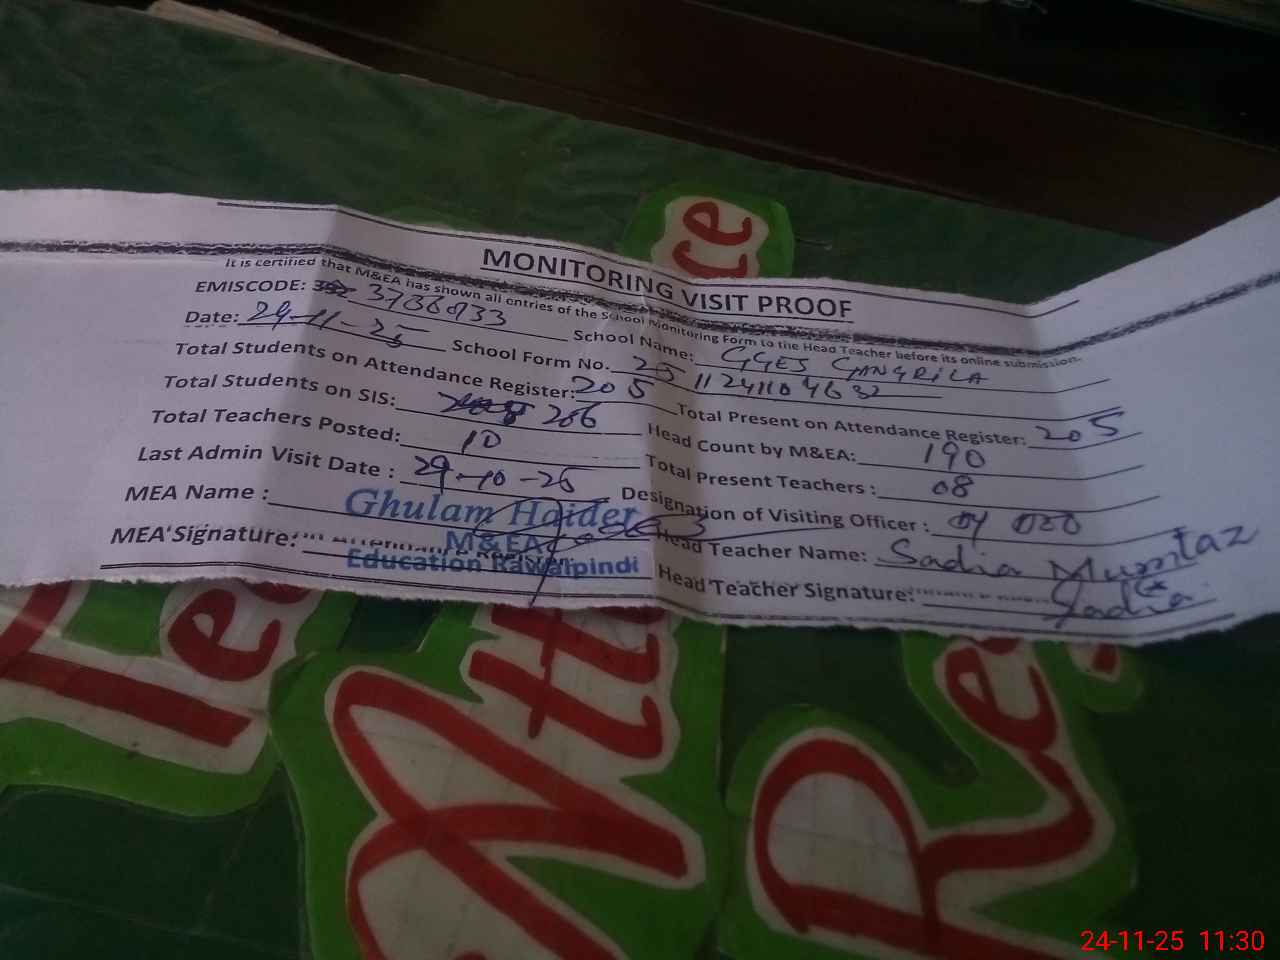 ce
MONITORING VISIT PROOF
It is certified that M&EA has shown all entries of the School Monitoring Form to the Head Teacher before its online submission.
EMISCODE: School Name: GGES GANGRILA
Date: School Form No.
Total Students on Attendance Register: 205 Total Present on Attendance Register: 205
Total Students on SIS: 206 Head Count by M&EA: 190
Total Teachers Posted: 10 Total Present Teachers : 08
Last Admin Visit Date : 29-10-25 Designation of Visiting Officer :
MEA Name : Ghulam Haider Head Teacher Name: Sadia Mumtaz
M&EA
MEA Signature: Education Rawalpindi Head Teacher Signature: Sadia
Tea
Atte
Re
24-11-25 11:30